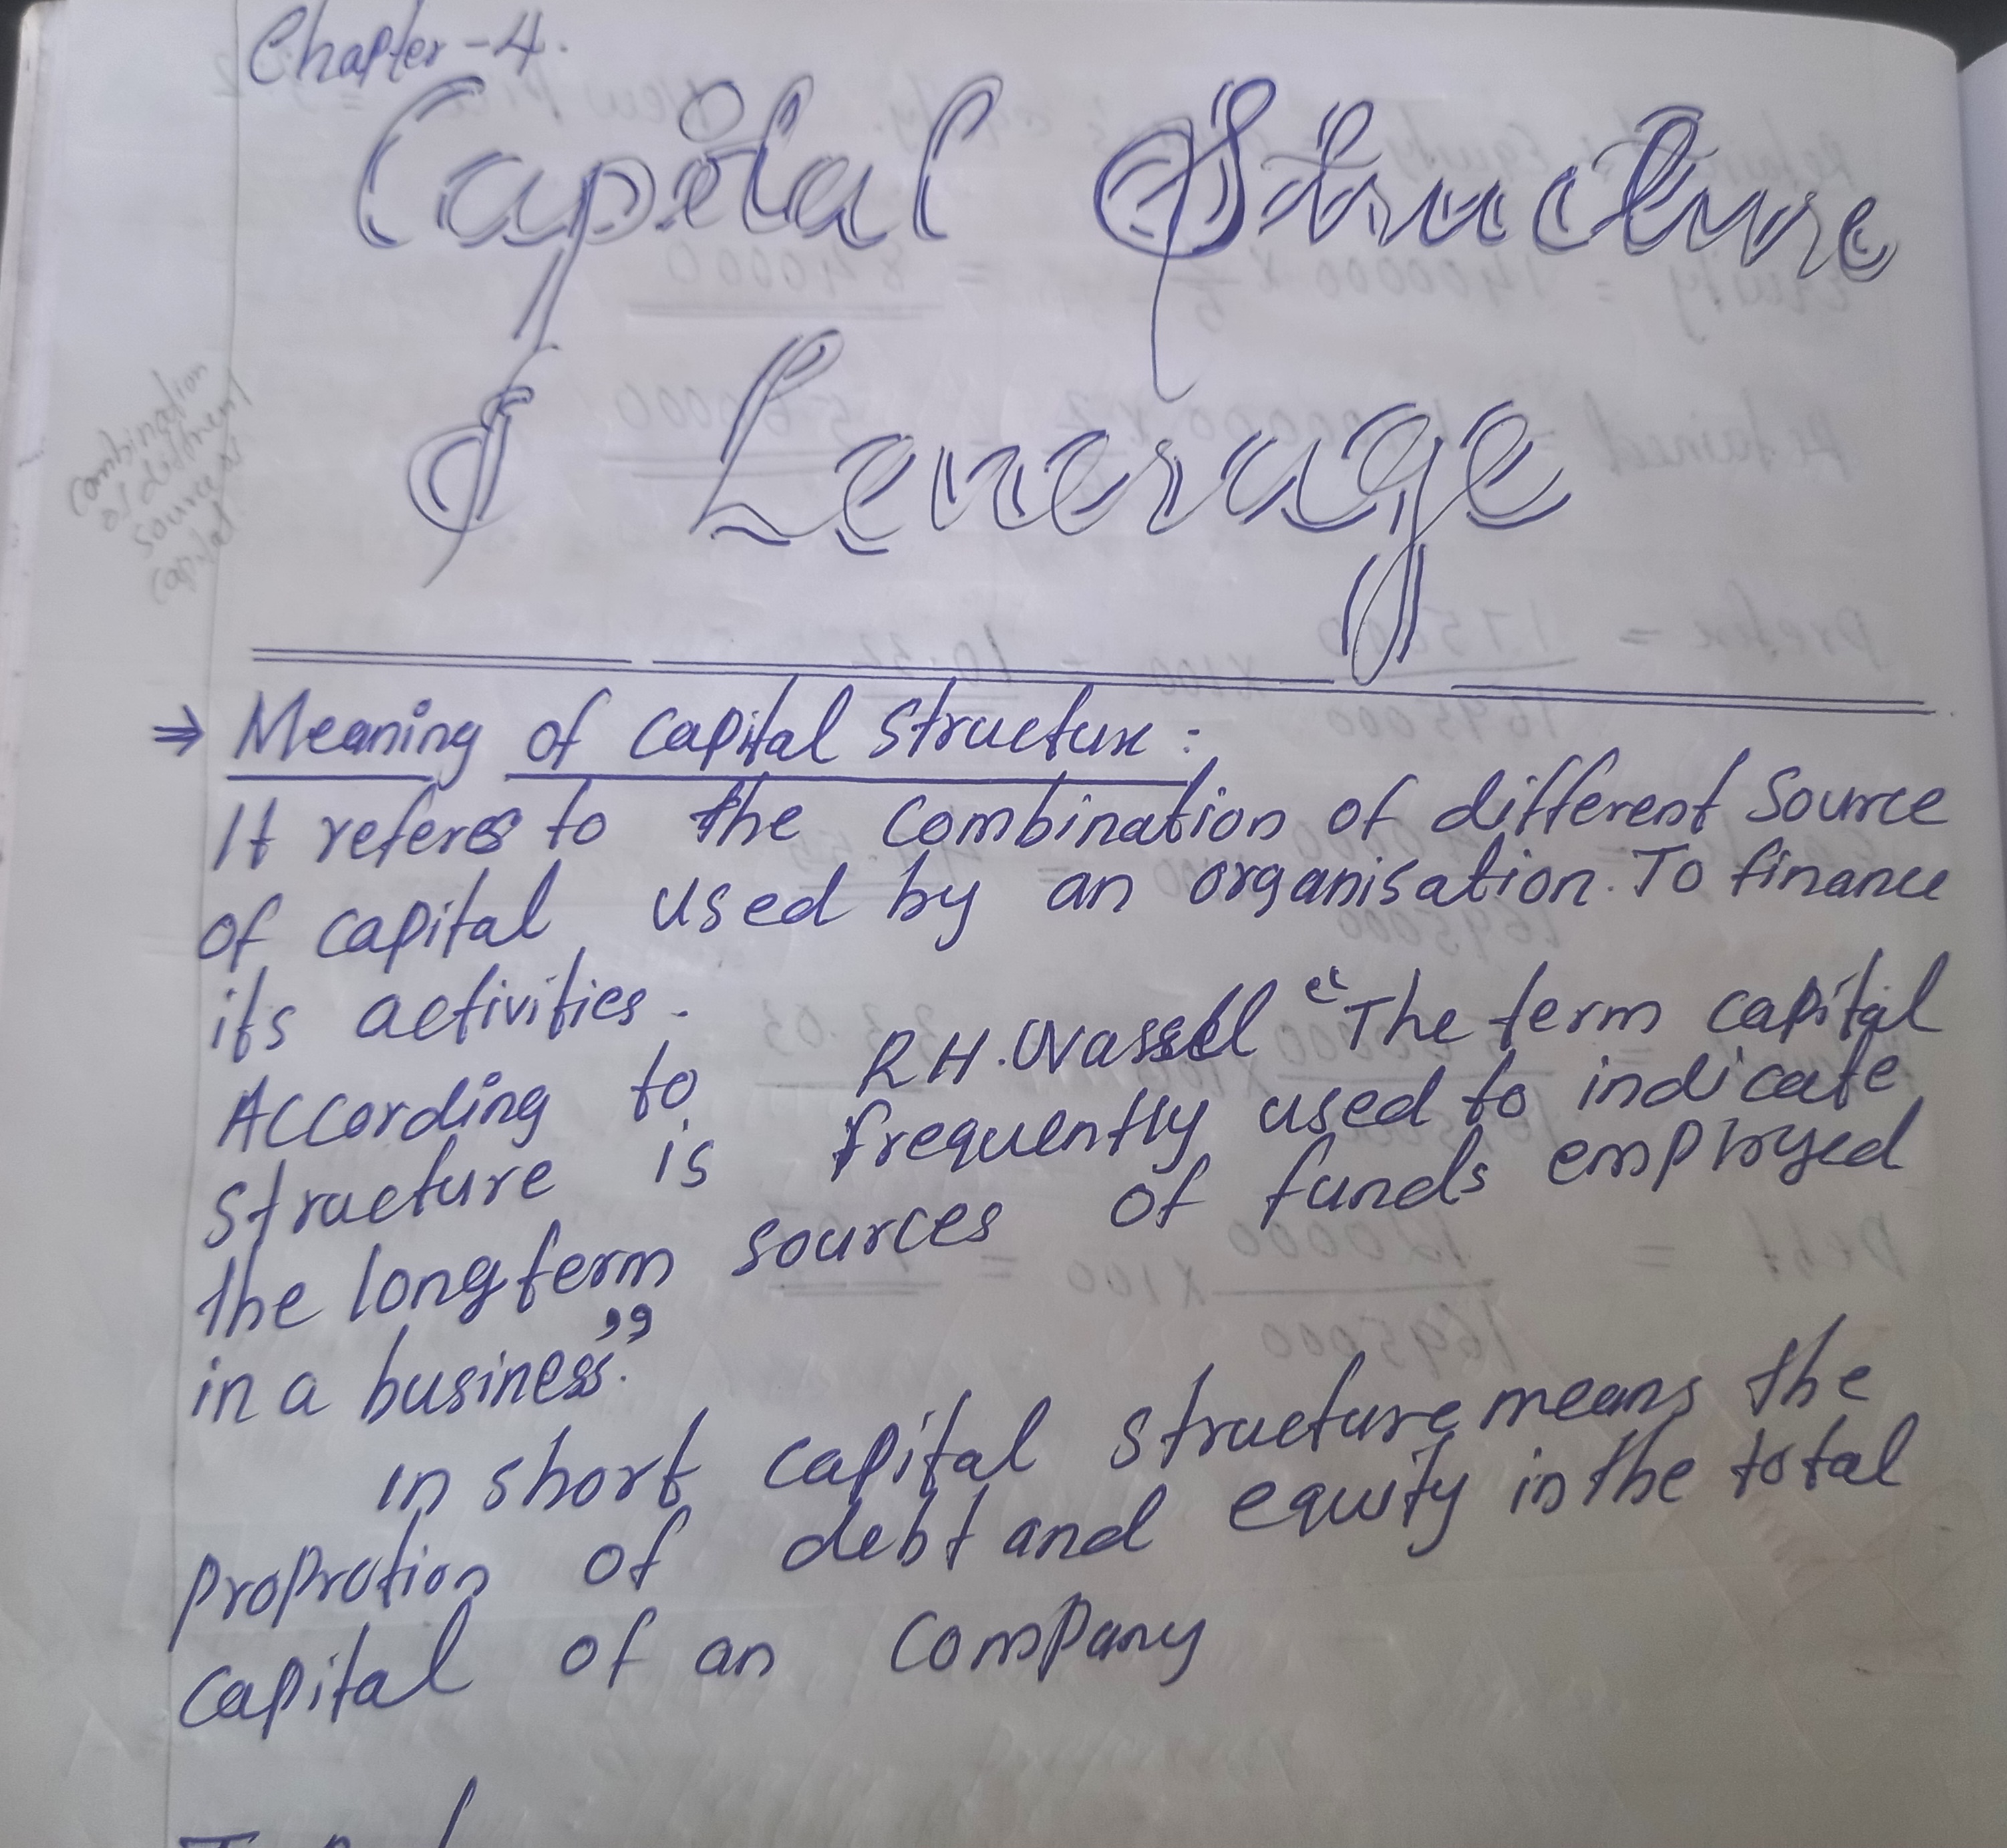 Chapter-4.
Capital Structure
& Leverage
combination
of different
source of
capital
⇒ Meaning of capital structure:
It referes to the combination of different source
of capital used by an organisation. To finance
its activities.
According to R.H. Wassel "The term capital
structure is frequently used to indicate
the long term sources of funds employed
in a business".
in short capital structure means the
proprotion of debt and equity in the total
capital of an company